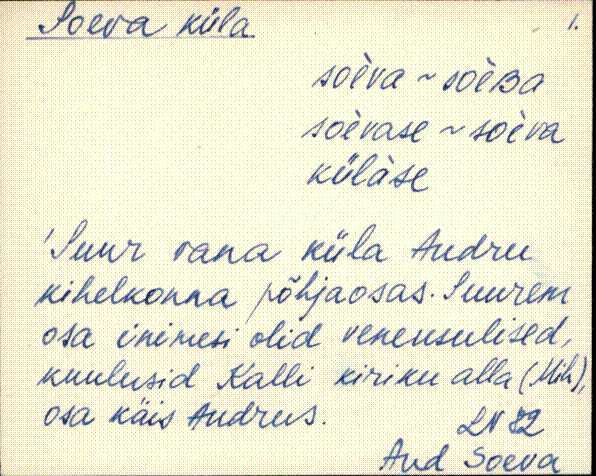 Soeva küla 1.
soèva ~ soèʙa
soèvase ~ soèva
külàse
'Suur vana küla Audru
kihelkonna põhjaosas. Suurem
osa inimesi olid veneusulised,
kuulusid Kalli kiriku alla (Mih),
osa käis Audrus.
LN 82
Aud Soeva